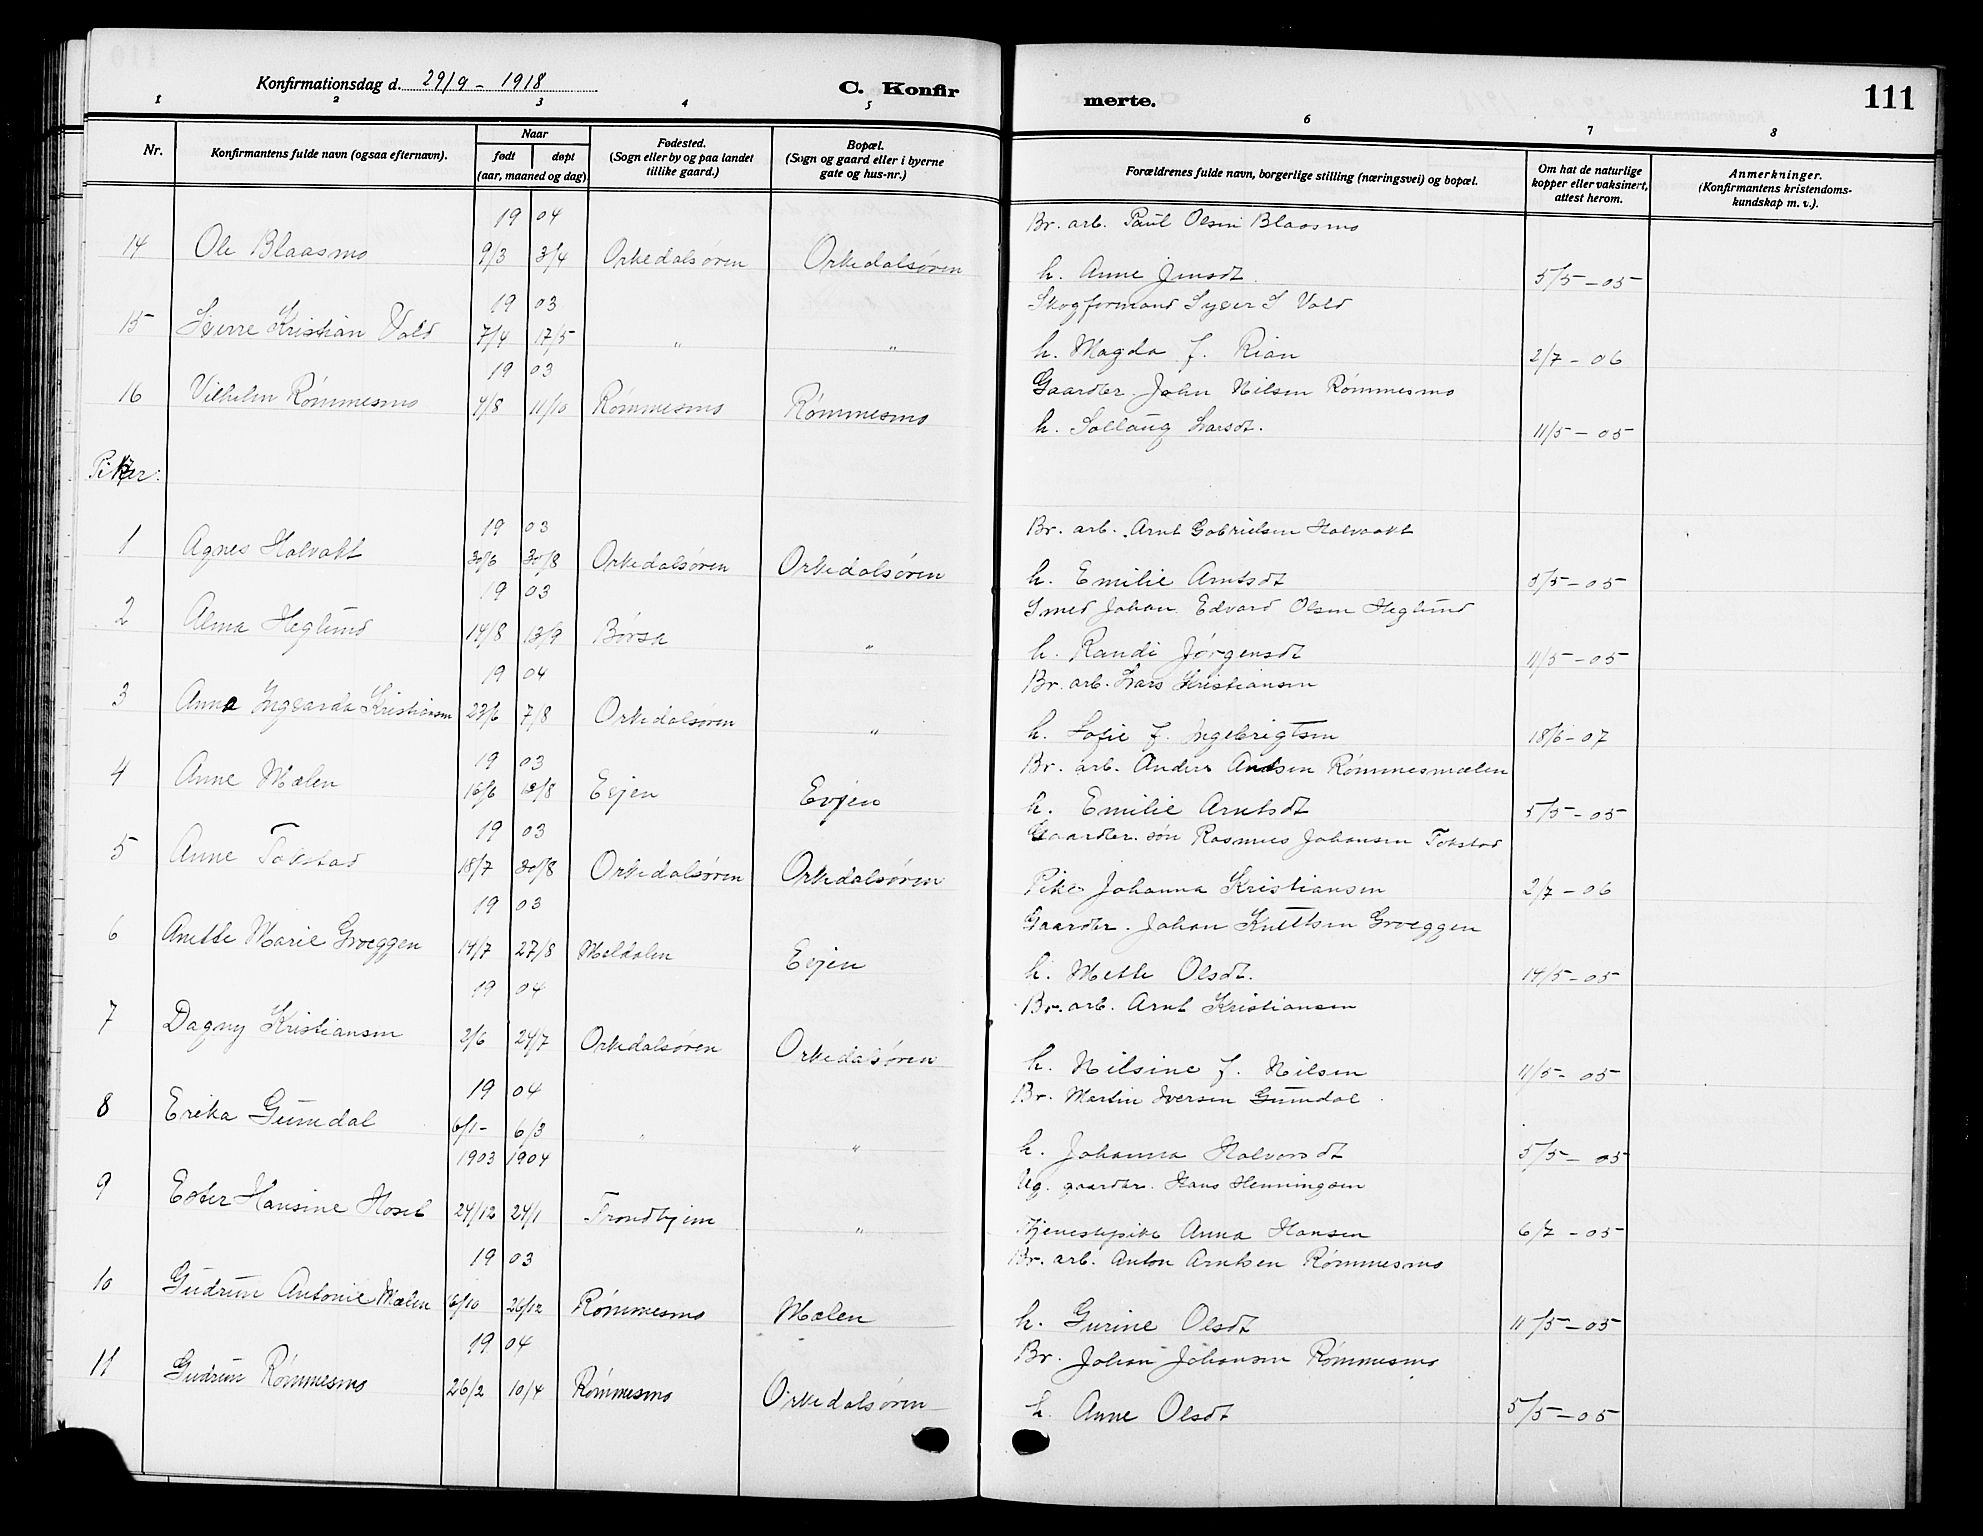 Konfirmationsdag d. 29/9 - 1918
C. Konfirmerte.
111
1 2 3 4 5 6 7 8
Nr.
Konfirmantens fulde navn (ogsaa efternavn).
Naar
født døpt
(aar, maaned og dag)
Fødested.
(Sogn eller by og paa landet
tillike gaard.)
Bopæl.
(Sogn og gaard eller i byerne
gate og hus-nr.)
Forældrenes fulde navn, borgerlige stilling (næringsvei) og bopæl.
Om hat de naturlige
kopper eller vaksinert,
attest herom.
Anmerkninger.
(Konfirmantens kristendoms-
kundskap m. v.).
19 04 Br. arb. Paul Olsen Blaasmo
14 Ole Blaasmo 9/3 3/4 Orkedalsøren Orkedalsøren h. Anne Jensdt. 5/5 - 05
19 03 Skogformand Syver S Vold
15 Sverre Kristian Vold 7/4 17/5 " " h. Magda f. Rian 2/7 - 06
19 03 Gaardbr. John Nilsen Rømmesmo
16 Vilhelm Rømmesmo 4/8 11/10 Rømmesmo Rømmesmo h. Sollaug Larsdt. 11/5 - 05
Piker.
19 03 Br. arb. Arnt Gabrielsen Halvakt
1 Agnes Halvakt 30/6 30/8 Orkedalsøren Orkedalsøren h. Emilie Arntsdt 5/5 - 05
19 03 Smed Johan Edvard Olsen Heglund
2 Alma Heglund 14/8 13/9 Børsa " h. Randi Jørgensdt 11/5 - 05
19 04 Br. arb. Lars Kristiansen
3 Anna Ingvarda Kristiansen 23/6 7/8 Orkedalsøren " h. Sofie f. Ingebrigtsen 18/6 - 07
19 03 Br. arb. Anders Andsen Rømmesmælen
4 Anne Mælen 16/6 /8 Evjen Evjen h. Emilie Arntsdt 5/5 - 05
19 03 Gaardbr. søn Rasmus Johansen Tokstad
5 Anne Tokstad 18/7 30/8 Orkedalsøren Orkedalsøren Pike Johanna Kristiansen 2/7 - 06
19 03 Gaardbr. Johan Knuttsen Groeggen
6 Anette Marie Groeggen 14/7 27/8 Meldalen Evjen h. Mette Olsdt. 14/5 - 05
19 04 Br. arb. Arnt Kristiansen
7 Dagny Kristiansen 2/6 24/7 Orkedalsøren Orkedalsøren h. Nilsine f. Nilsen 11/5 - 05
19 04 Br. Martin Iversen Gumdal
8 Erika Gumdal 6/1 - 6/3 " " h. Johanna Halvorsdt 5/5 - 05
1903 1904 Ug. gaardbr. Hans Henningsen
9 Ester Hansine Hosel 24/12 24/1 Trondhjem " Tjenestepike Anna Hansen 6/7 - 05
19 03 Br. arb. Anton Arntsen Rømmesmo
10 Gudrun Antonie Mælen 16/10 26/12 Rømmesmo Mælen h. Gurine Olsdt 11/5 - 05
19 04 Br. Johan Johansen Rømmesmo
11 Gudrun Rømmesmo 26/2 10/4 Rømmesmo Orkedalsøren h. Anne Olsdt 5/5 - 05